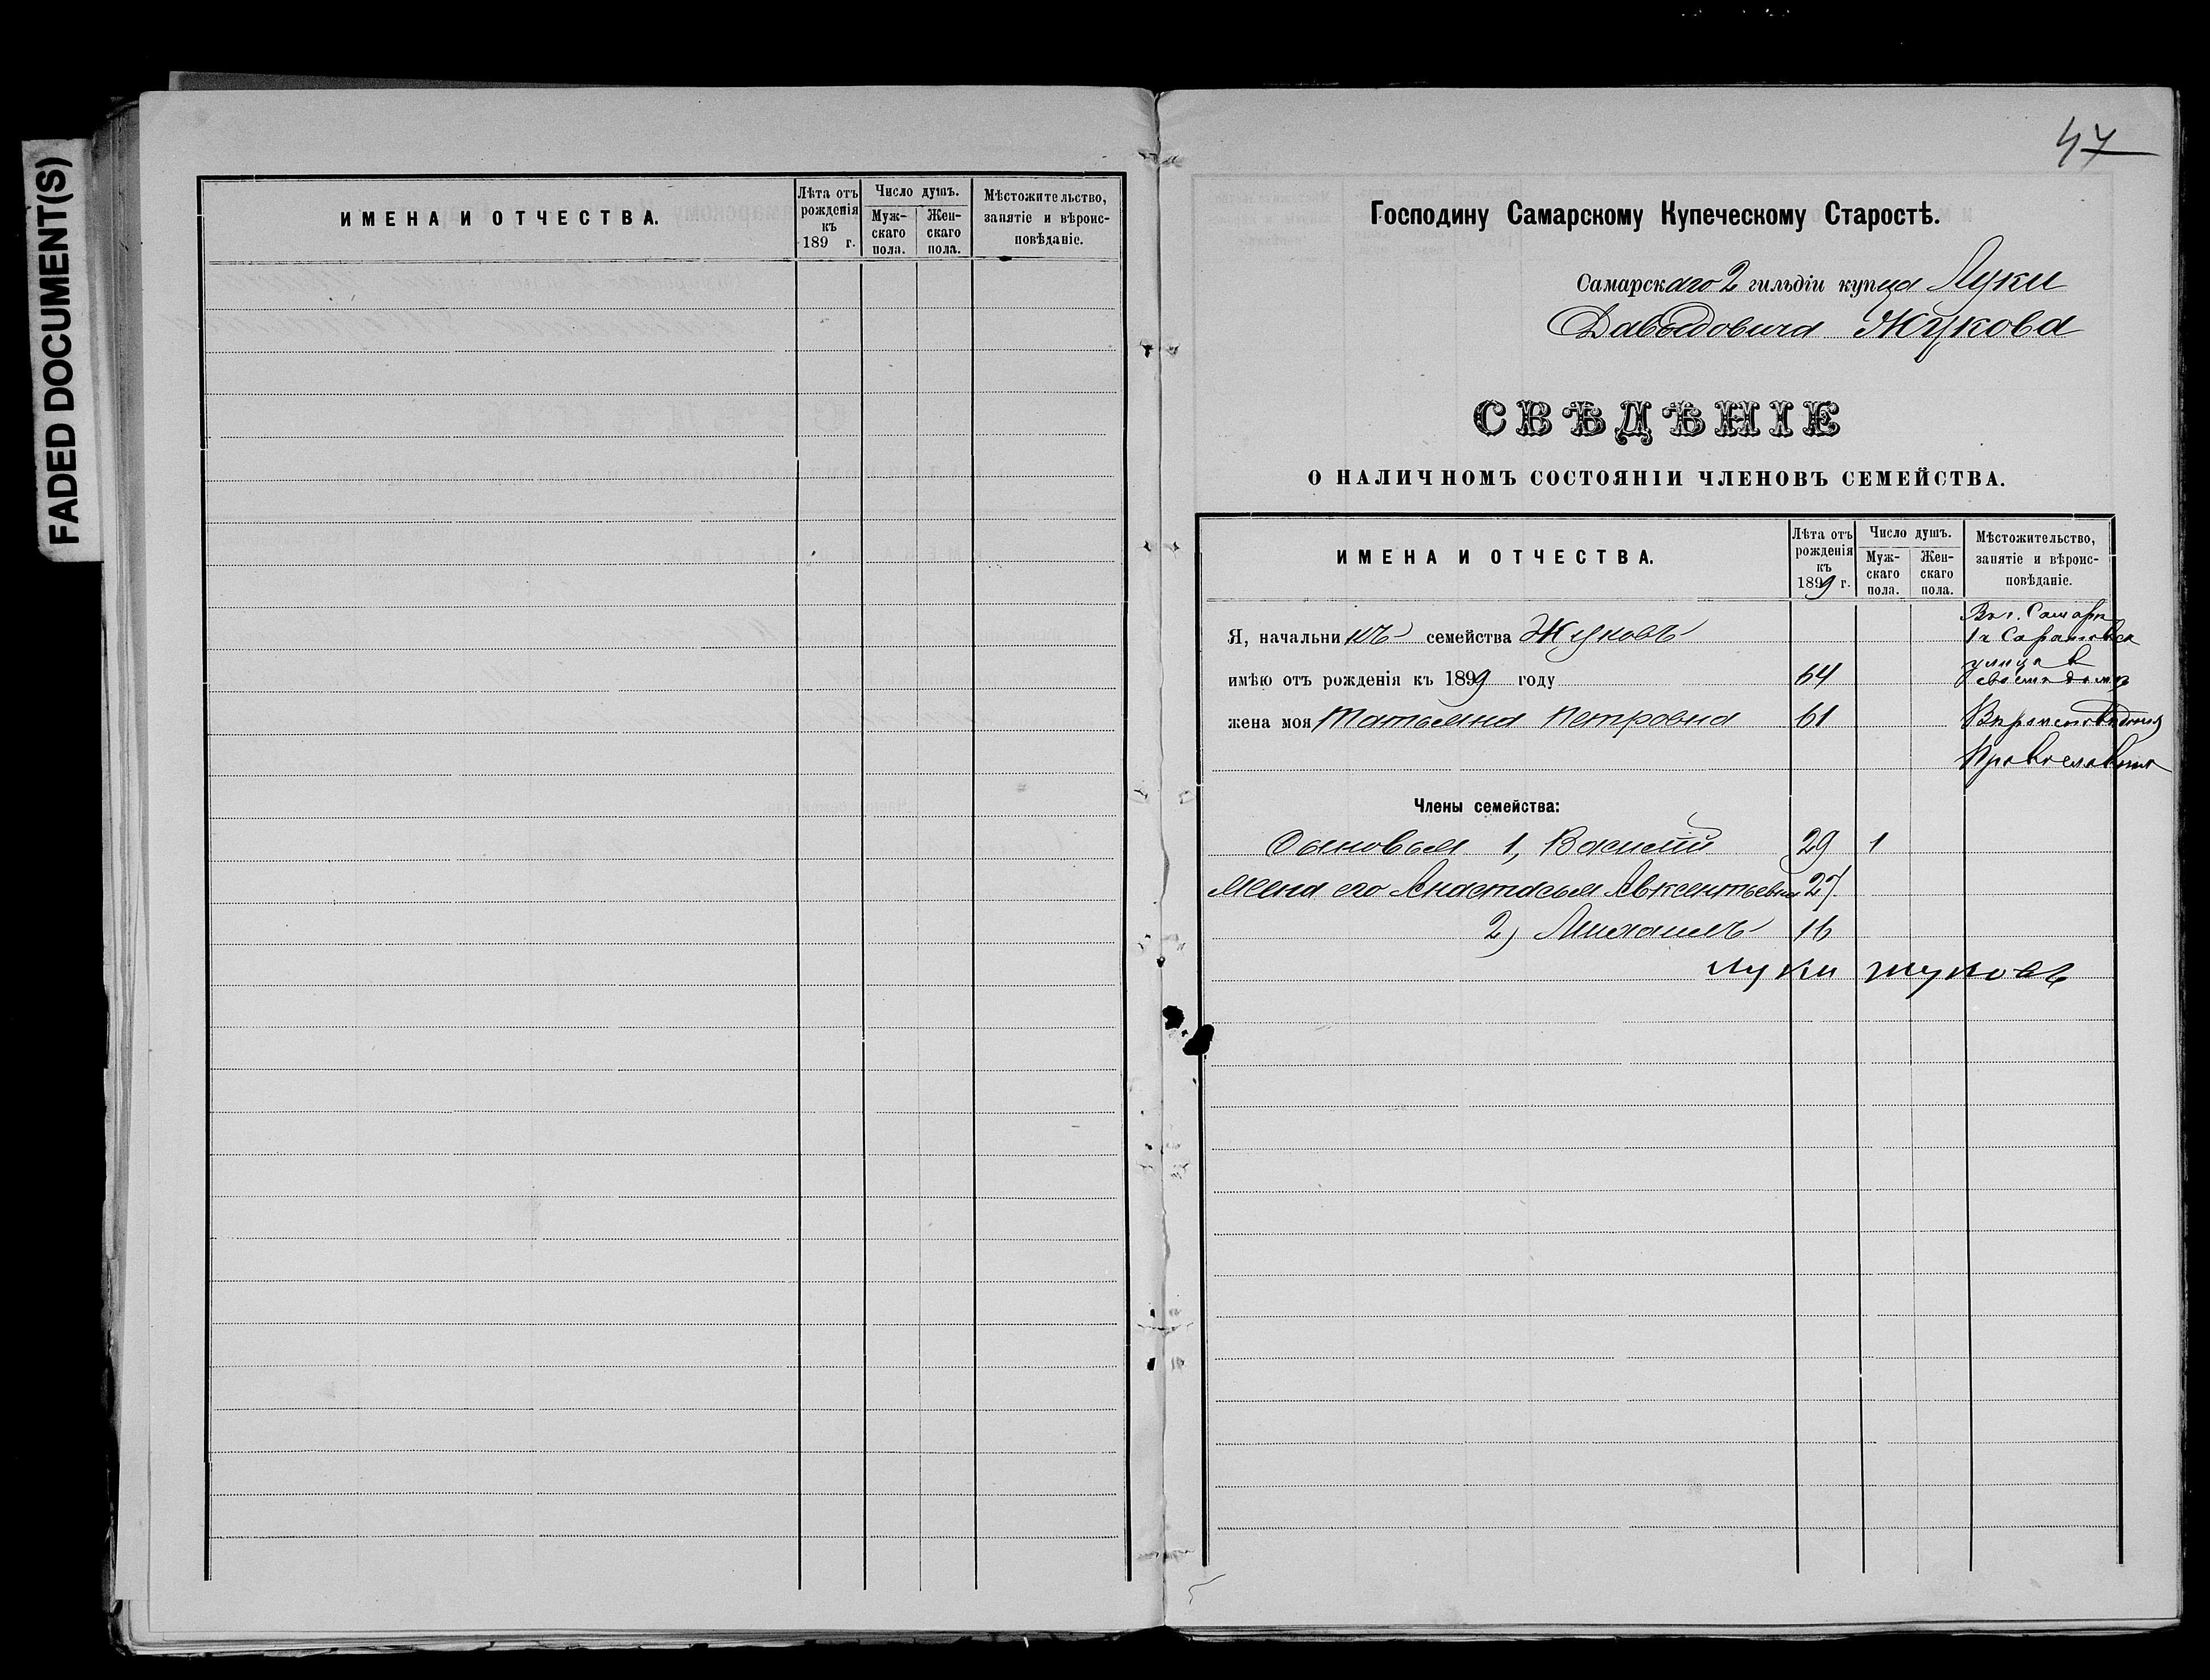 FADED DOCUMENT(S)
ИМЕНА И ОТЧЕСТВА.
Лѣта отъ рожденія къ 189 г.
Число душъ.
Мужскаго пола.
Женскаго пола.
Мѣстожительство, занятіе и вѣроисповѣданіе.
47
Господину Самарскому Купеческому Старостѣ.
Самарскаго 2 гильдіи купца Луки
Давыдовича Жукова
СВѢДѢНІЕ
О НАЛИЧНОМЪ СОСТОЯНІИ ЧЛЕНОВЪ СЕМЕЙСТВА.
ИМЕНА И ОТЧЕСТВА.
Лѣта отъ рожденія къ 1899 г.
Число душъ.
Муж-
скаго
пола.
Жен-
скаго
пола.
Мѣстожительство,
занятіе и вѣроис-
повѣданіе.
Я, начальникъ семейства Жуковъ
имѣю отъ рожденія къ 1899 году 64
жена моя Татьяна Петровна 61
Самар
улица в
своемъ домѣ
Члены семейства:
Сыновья 1, Василій 29 1
жена его Анастасья Авксентьевна 27
2) Михаилъ 16
Луки жуковъ